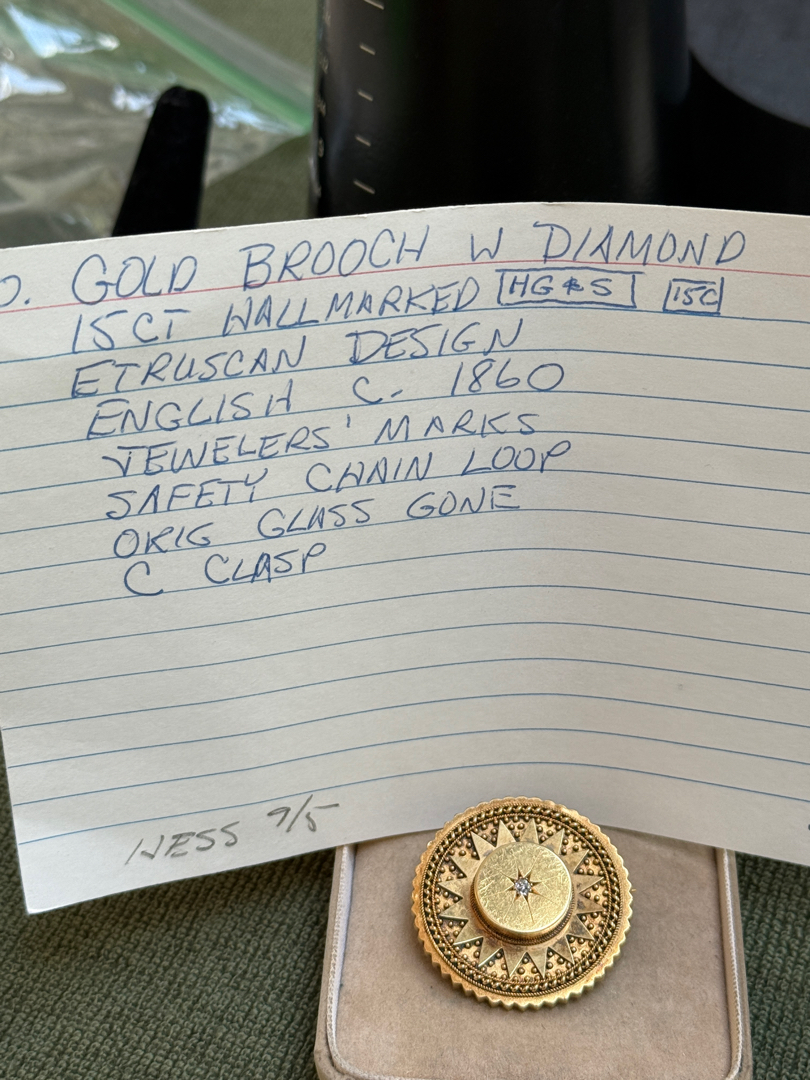 . GOLD BROOCH W DIAMOND
15CT HALLMARKED HG&S 15C
ETRUSCAN DESIGN
ENGLISH C. 1860
JEWELERS' MARKS
SAFETY CHAIN LOOP
ORIG GLASS GONE
C CLASP
HESS 9/5